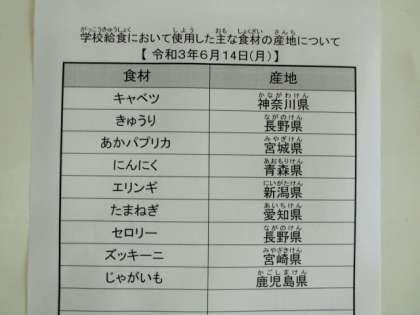 学校給食において使用した主な食材の産地について
【 令和3年6月14日(月) 】
食材 産地
キャベツ 神奈川県
きゅうり 長野県
あかパプリカ 宮城県
にんにく 青森県
エリンギ 新潟県
たまねぎ 愛知県
セロリー 長野県
ズッキーニ 宮崎県
じゃがいも 鹿児島県